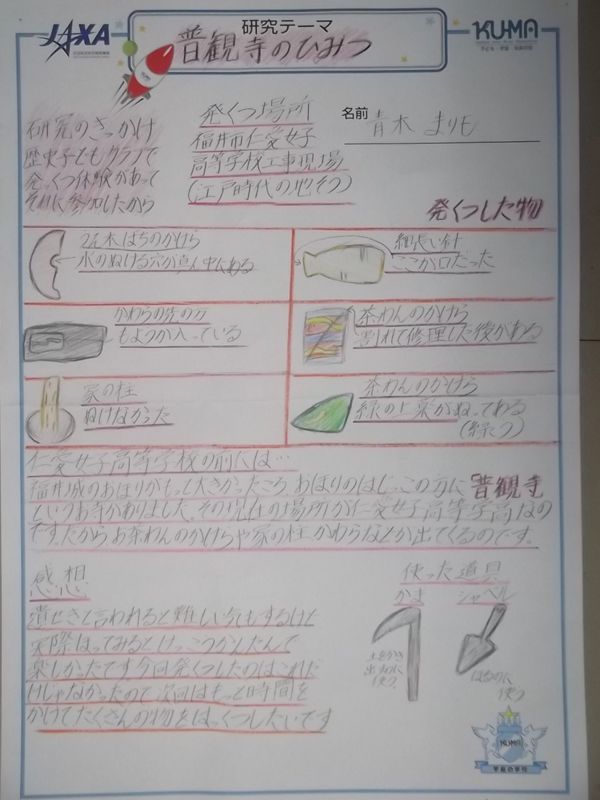 JAXA
研究テーマ
普観寺のひみつ
KU-MA
名前 青木 まりも
研究のきっかけ
歴史子どもクラブで
発くつ体験があって
それに参加したから
発くつ場所
福井市仁愛女子
高等学校工事現場
(江戸時代の地そう)
発くつした物
うえ木ばちのかけら
水のぬける穴が真ん中にある
ここが口だった
かわらの先の方
もようが入っている
茶わんのかけら
割れて修理した後がある
家の柱
ぬけなかった
茶わんのかけら
緑の上薬がぬってある
仁愛女子高等学校の前には…
福井城のおほりがもっと大きかったころ、おほりのはじっこの方に「普観寺
というお寺がありました。その現在の場所が仁愛女子高等学高なの
です。だからお茶わんのかけらや家の柱、かわらなどが出てくるのです。
感想
遺せきと言われると難しい気もするけど
実際ほってみるとけっこうかんたんで
楽しかったです今回発くつしたのはこれだ
けじゃなかったので次回はもっと時間を
かけてたくさんの物をはっくつしたいです
使った道具
かま シャベル
土をかき
出すのに
使う
ほるのに
使う
KU-MA
宇宙の学校